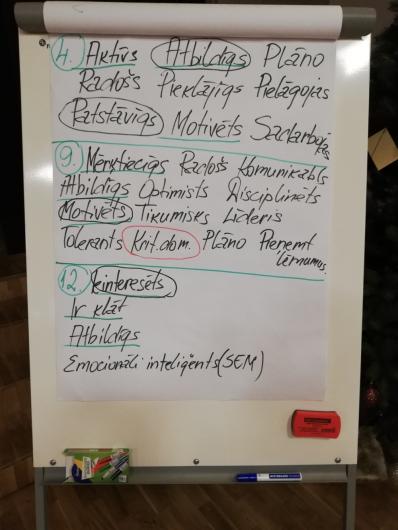 4. Aktīvs Atbildīgs Plāno
Radošs Pieklājīgs Pielāgojas
Patstāvīgs Motivēts Sadarbojas
9. Mērķtiecīgs Radošs Komunikabls
Atbildīgs Optimists Disciplinēts
Motivēts Tikumisks Līderis
Tolerants Krit.dom. Plāno Pieņemt
lēmumus.
12. Ieinteresēts
Ir klāt
Atbildīgs
Emocionāli inteliģents (SEM)